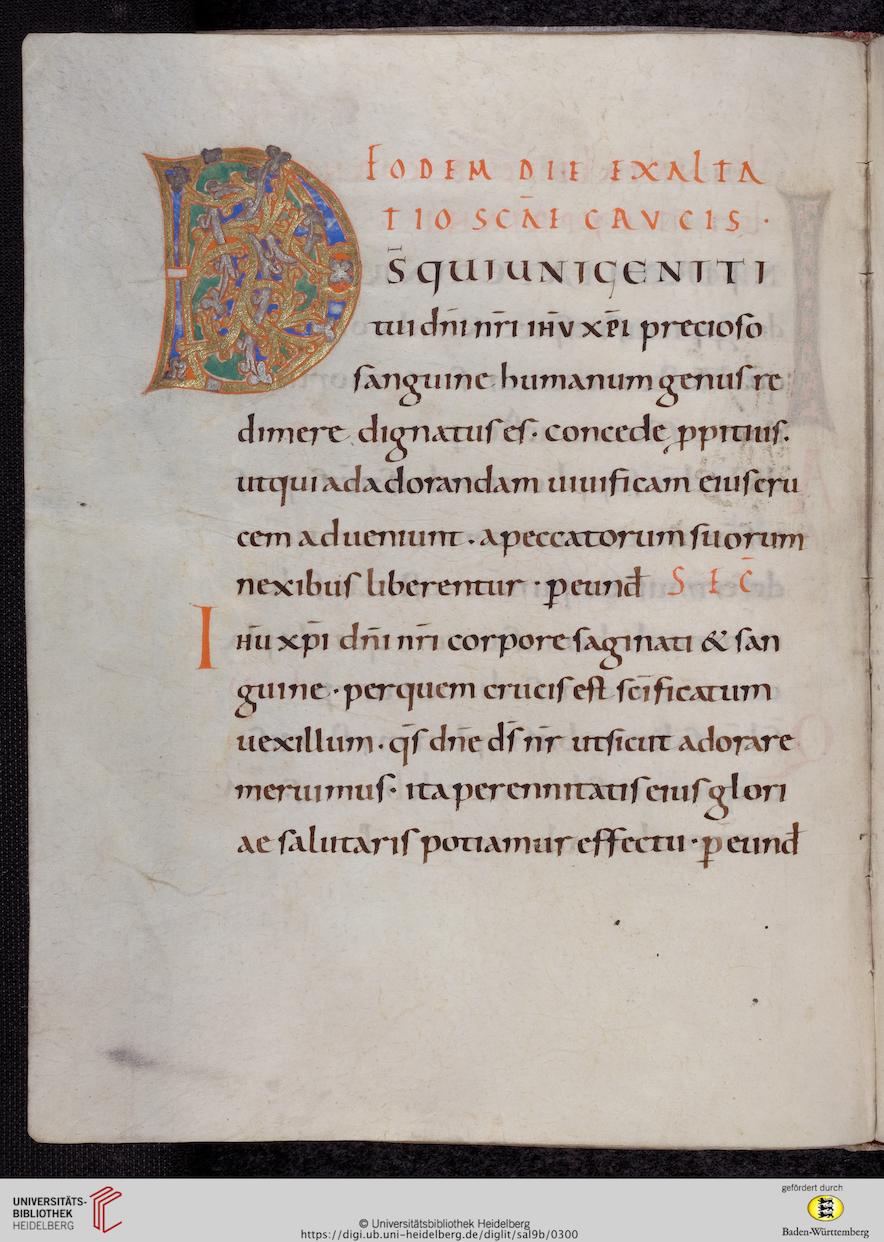 EODEM DIE EXALTA
TIO SCĀE CRVCIS ·
DS̄ QUI UNIGENITI
tui dn̄i nr̄i ihv̄ xp̄i precioso
sanguine humanum genus re
dimere dignatus es · concede p̱pitius.
ut qui ad adorandam uiuificam eius cru
cem adueniunt · a peccatorum suorum
nexibus liberentur · p̱ eund̄ SEC̄
Ihū xp̄i dn̄i nr̄i corpore saginati & san
guine · per quem crucis est sc̄ificatum
uexillum · q̄s dn̄e ds̄ nr̄ ut sicut adorare
meruimus · ita perennitatis eius glori
ae salutaris potiamur effectu · p̱ eund̄
UNIVERSITÄTS-
BIBLIOTHEK
HEIDELBERG
© Universitätsbibliothek Heidelberg
https://digi.ub.uni-heidelberg.de/diglit/sal9b/0300
gefördert durch
Baden-Württemberg